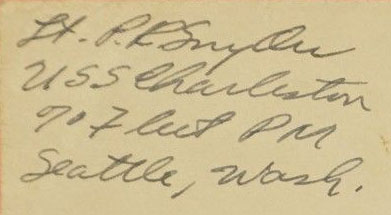 Lt. P.R. Snyder
USS Charleston
% Fleet PM
Seattle, Wash.